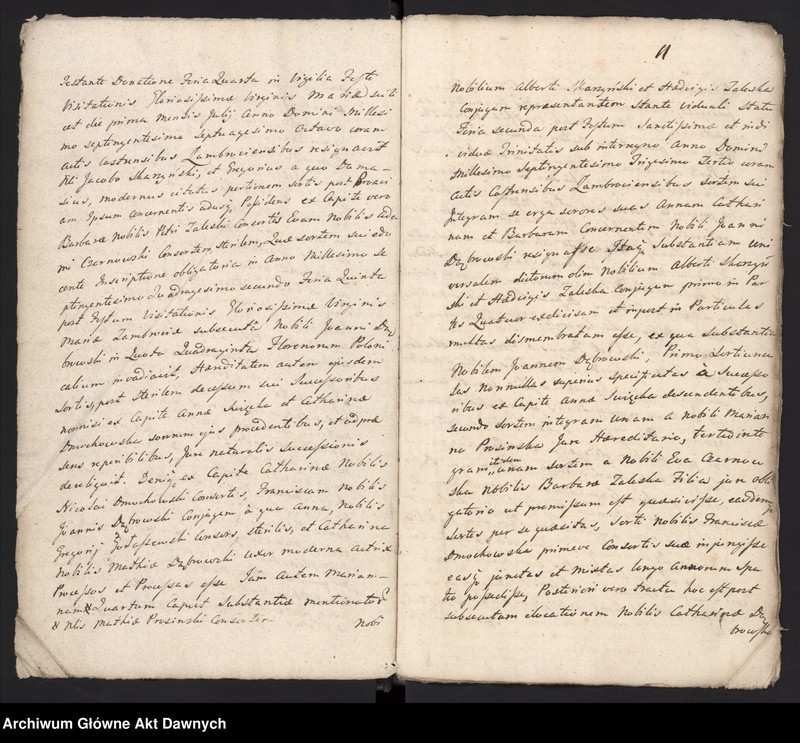 testante Donatione Feria Quarta in Vigilia Festi
Visitationis Gloriosissimæ Virginis Mariæ scili
cet die prima mensis Julij Anno Domini Millesi
mo septingentesimo Septuagesimo Octavo coram
actis Castrensibus Zambroviensibus resignavit
Jacobo Skarzyński, et Gregorius a quo Dama-
sius, modernus citatus portionem sortis post
am Ipsum concernentis adusq Possidens ex Capite vero
Barbaræ Nobilis Petri Zaleski Consortis Evam Nobilis Ada
mi Czarnowski Consortem, sterilem, Quæ sortem sui edo
cente Inscriptione obligatoria in Anno Millesimo Se
ptingentesimo Quadragesimo secundo Feria Quinta
post Festum Visitationis Gloriosissimæ Virginis
Mariæ Zambroviæ subsecuta Nobili Joanni Dą
browski in Quota Quadraginta Florenorum Poloni
calium invadiavit, Hæreditatem autem ejusdem
Sortis, post sterilem decessum sui Successoribus
nonnisi ex Capite Annæ Świącka et Catharinæ
Dmochowska sororum ejus procedentibus, et ad præ
sens reperibilibus, Jure naturalis Successionis
dereliquit. Deniq ex Capite Catharinæ Nobilis
Nicolai Dmochowski Consortis, Franciscam Nobilis
Joannis Dąbrowski Conjugem à qua Anna, Nobilis
Gregorij Gołaszewski Consors, sterilis, et Catharina
Nobilis Mathiæ Dąbrowski Uxor moderna Actrix
Processos et Processas esse Jam Autem Mariam-
nam Quartum Caput Substantiæ mentionatæ
Nlis Mathiæ Prosinski Consortem
Nobi
11
Nobilium Alberti Skarzyński et Hedvigis Zaleska
Conjugum repræsentantem Stante viduali Statu
Feria secunda post Festum Sanctissimæ et indi
viduæ Trinitatis sub interregno Anno Domini
Millesimo Septingentesimo Trigesimo Tertio coram
Actis Castrensibus Zambroviensibus sortem sui
Integram se erga sorores suas Annam Cathari
nam et Barbaram Concernentem Nobili Joanni
Dąbrowski resignasse. Itaq Substantiam uni
versalem dictorum olim Nobilium Alberti Skarzyń
ski et Hedvigis Zaleska Conjugum primo in Par
tes Quatuor exdivisam et inpost in Particulas
multas dismembratam esse, ex qua substantia
Nobilem Joannem Dąbrowski, Primo Sortiuncu
las Nonnullas superius specificatas à Successo
ribus ex Capite Annæ Świącka descendentibus,
secundo sortem integram unam a Nobili Marian
na Prosinska Jure Hæreditario, tertio inte
gram itidem unam sortem a Nobili Eva Czarnow
ska Nobilis Barbaræ Zaleska Filia jure obli
gatorio ut præmissum est quæsivisse, easdemq
Sortes per se quæsitas, Sorti Nobilis Franciscæ
Dmochowska primevæ Consortis suæ injunxisse
easq junctas et mistas longo Annorum Spa
tio possedisse, Posteriori vero Tractu hoc est post
subsecutam elocationem Nobilis Catharinæ Dą
browska